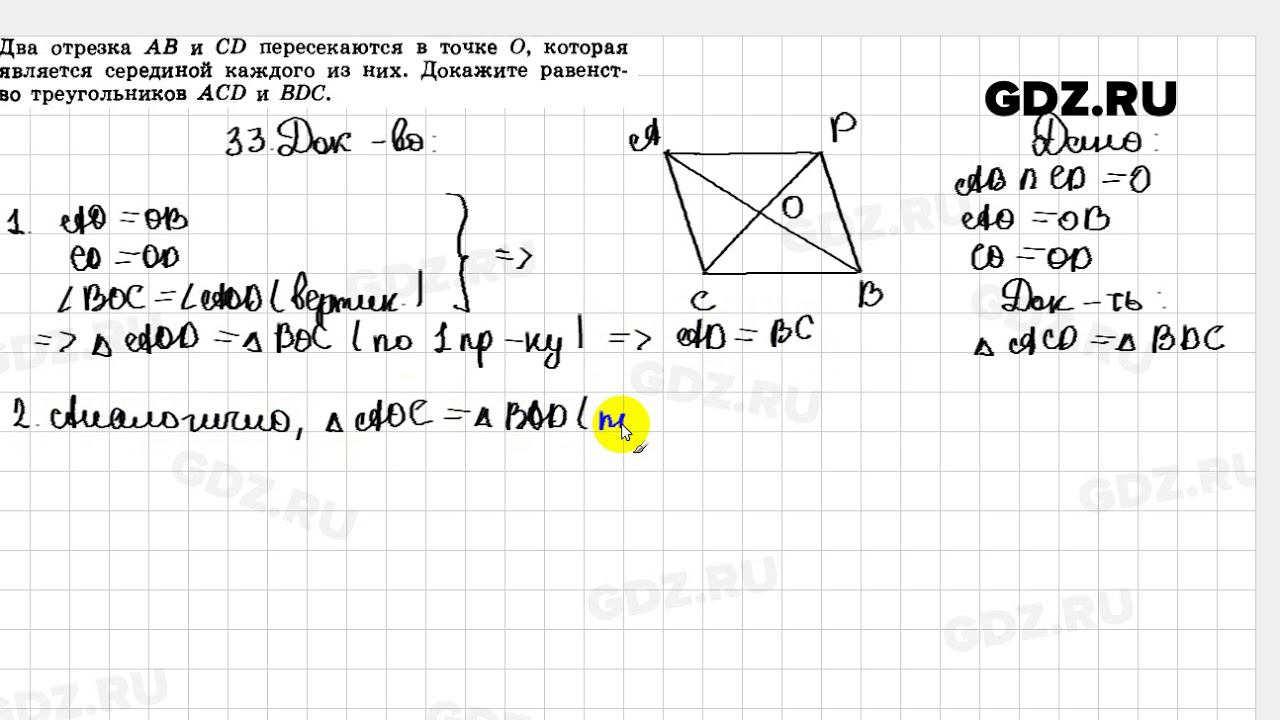 Два отрезка AB и CD пересекаются в точке O, которая
является серединой каждого из них. Докажите равенст-
во треугольников ACD и BDC.
GDZ.RU
33. Док-во:
A
D
O
C
B
Дано:
AB ∩ CD = O
AO = OB
CO = OD
Док-ть:
△ ACD = △ BDC
1. AO = OB
CO = OD
∠BOC = ∠AOD (вертик.)
=>
=> △ AOD = △ BOC (по 1 пр-ку) => AD = BC
2. Аналогично, △ AOC = △ BOD (п
GDZ.RU
GDZ.RU
GDZ.RU
GDZ.RU
GDZ.RU
GDZ.RU
GDZ.RU
GDZ.RU
GDZ.RU
GDZ.RU
GDZ.RU